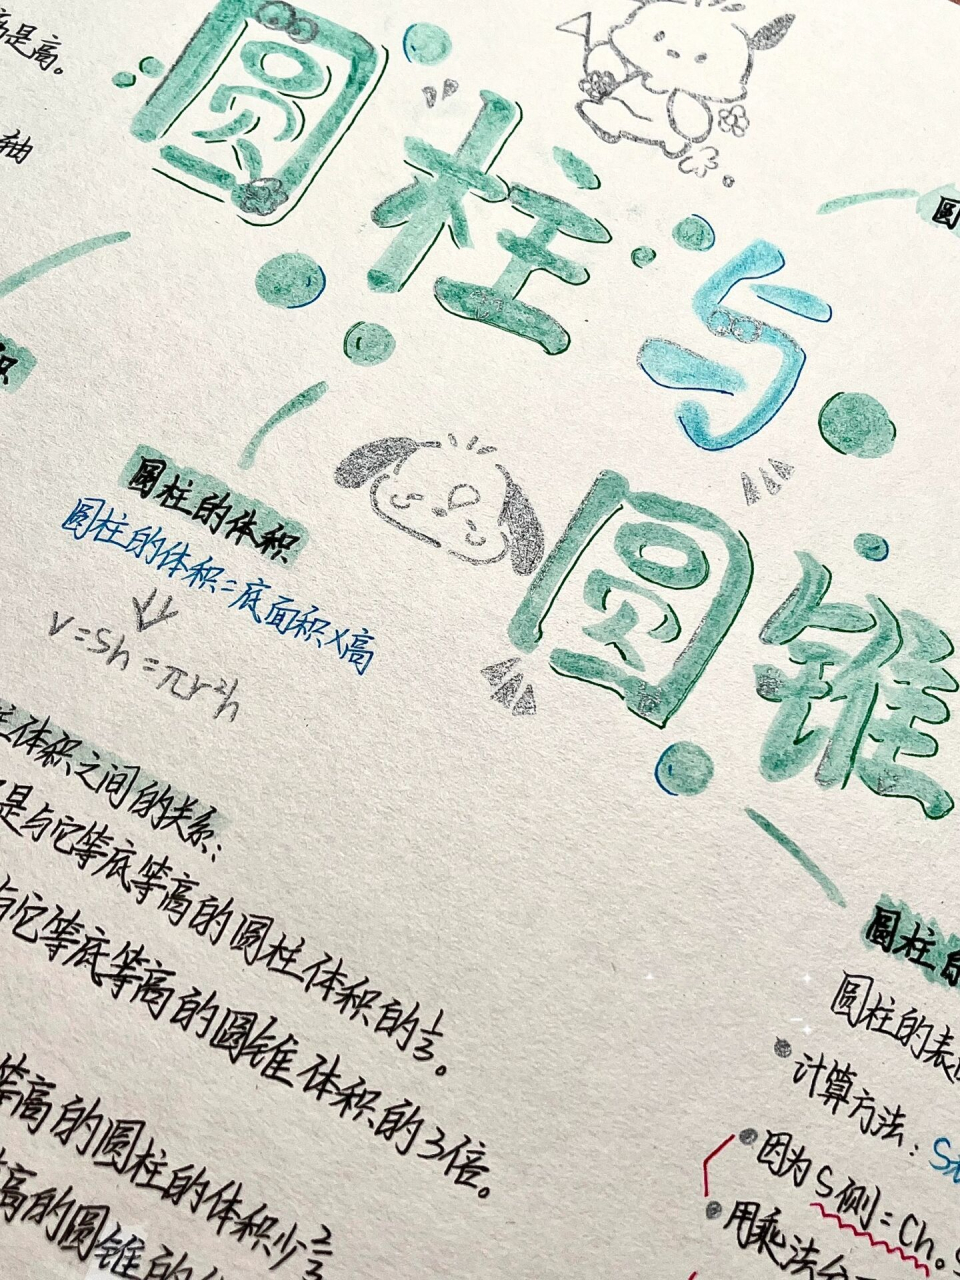 是高。
轴
圆柱与
圆锥
圆
积
圆柱的体积
圆柱的体积=底面积×高
V=Sh=πr²h
体积之间的关系:
是与它等底等高的圆柱体积的1/3。
与它等底等高的圆锥体积的3倍。
等高的圆柱的体积少2/3
高的圆锥的
圆柱的
圆柱的表
计算方法:S
因为S侧=Ch。
用乘法